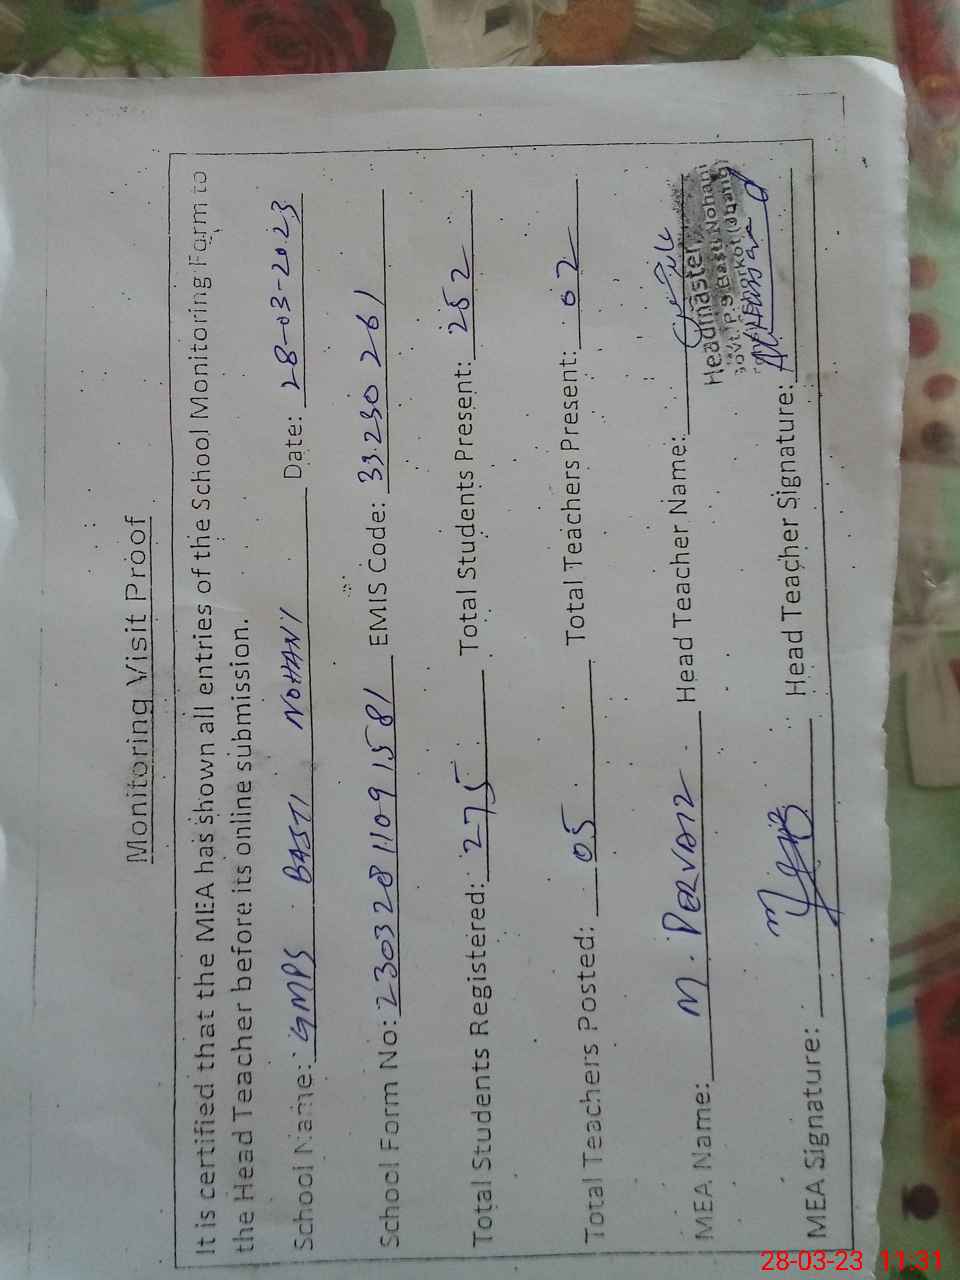 Monitoring Visit Proof
It is certified that the MEA has shown all entries of the School Monitoring Form to
the Head Teacher before its online submission.
School Name: GMPS BASTI NOHANI Date: 28-03-2023
School Form No: 23032811091581 EMIS Code: 33230261
Total Students Registered: 275 Total Students Present: 252
Total Teachers Posted: 05 Total Teachers Present: 02
MEA Name: M. PERVAIZ Head Teacher Name:
Headmaster
Govt. P S Basti Nohani
Shorkot (Jhang)
MEA Signature: Head Teacher Signature:
28-03-23 11:31